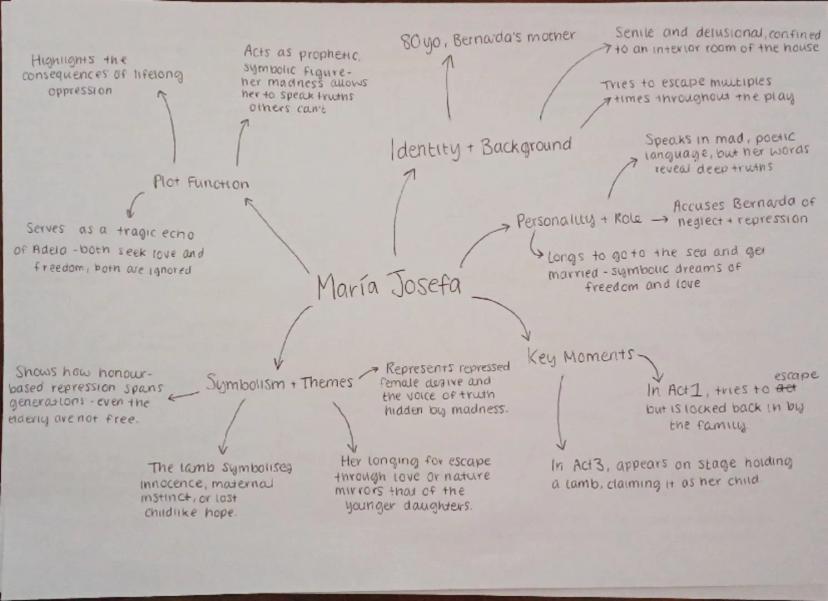 María Josefa
Identity + Background
80yo, Bernarda's mother
Senile and delusional, confined
to an interior room of the house
Tries to escape multiples
times throughout the play
Personality + Role
Speaks in mad, poetic
language, but her words
reveal deep truths
Accuses Bernarda of
neglect + repression
Longs to go to the sea and get
married - symbolic dreams of
freedom and love
Key Moments
In Act 1, tries to act escape
but is locked back in by
the family
In Act 3, appears on stage holding
a lamb, claiming it as her child
Symbolism + Themes
Represents repressed
female desire and
the voice of truth
hidden by madness.
Her longing for escape
through love or nature
mirrors that of the
younger daughters.
The lamb symbolises
innocence, maternal
instinct, or lost
childlike hope.
Shows how honour-
based repression spans
generations - even the
elderly are not free.
Plot Function
Serves as a tragic echo
of Adela - both seek love and
freedom, both are ignored
Highlights the
consequences of lifelong
oppression
Acts as prophetic,
symbolic figure -
her madness allows
her to speak truths
others can't